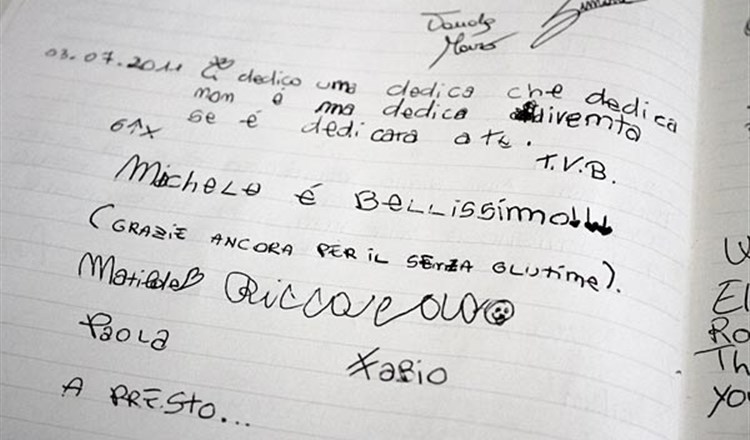 03.07.2011 Ti dedico una dedica che dedica
non è ma dedica divemta
se é dedicara a te.
T.V.B.
Michele é BELLISSimo!!!
(GRAZIE ANCORA PER iL SENZA GLUTiNE).
Matilde Riccardo
Paola
Fabio
A PRESTO...
W
El
Ro
Th
yo